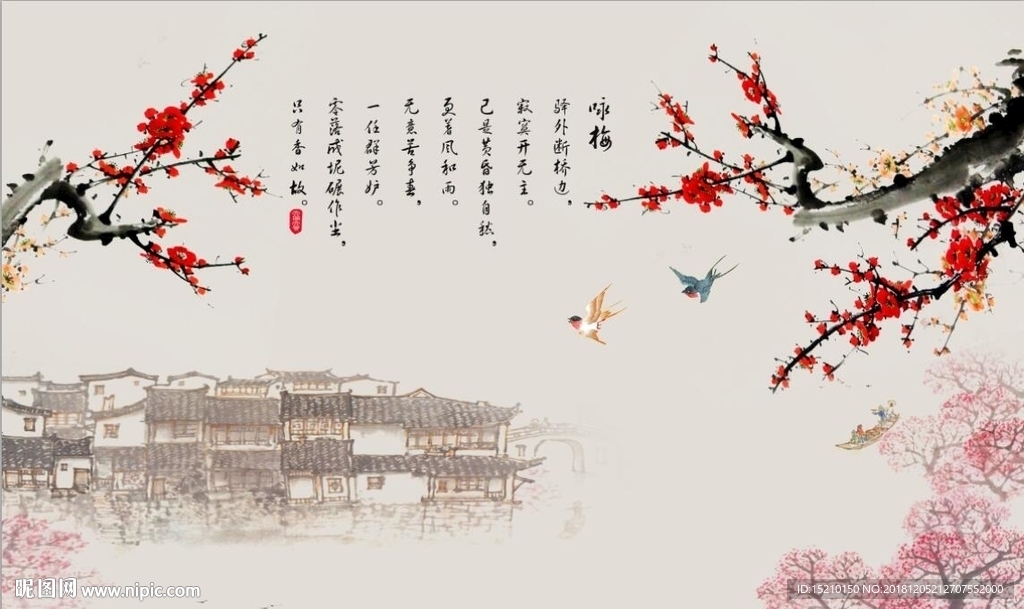 咏梅
驿外断桥边，
寂寞开无主。
已是黄昏独自愁，
更著风和雨。
无意苦争春，
一任群芳妒。
零落成坭碾作尘，
只有香如故。
昵图网 www.nipic.com
ID:15210150 NO:20181205212707552000